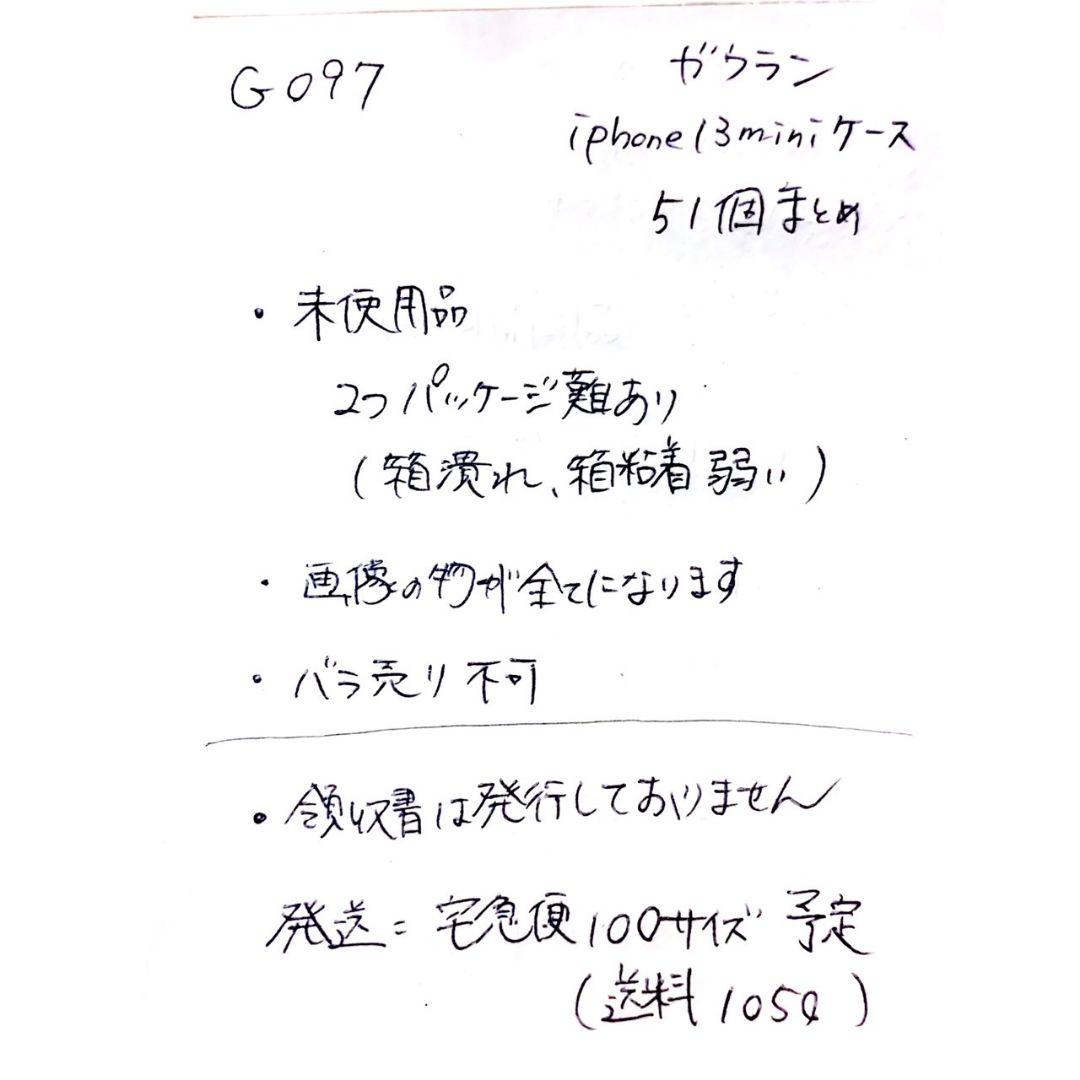 G097
ガウラン
iphone13miniケース
51個まとめ
・未使用品
2つパッケージ難あり
(箱潰れ、箱粘着弱い)
・画像の物が全てになります
・バラ売り不可
・領収書は発行しておりません
発送=宅急便100サイズ予定
(送料1050)